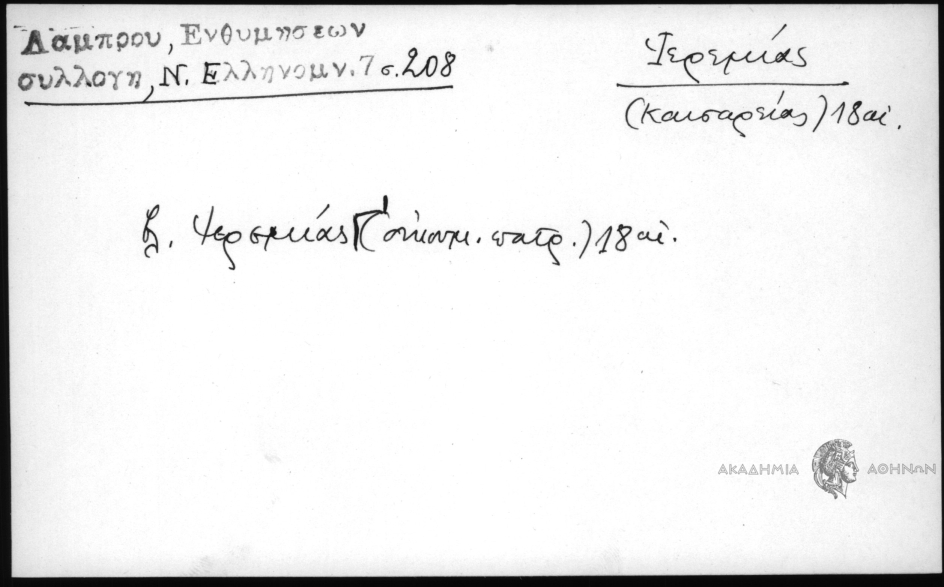 Λάμπρου, Ενθυμήσεων
συλλογή, Ν. Ελληνομν. 7 σ. 208
Ἱερεμίας
(Καισαρείας) 18 αἰ.
βλ. Ἱερεμίας Γ' (οἰκουμ. πατρ.) 18 αἰ.
ΑΚΑΔΗΜΙΑ ΑΘΗΝΩΝ